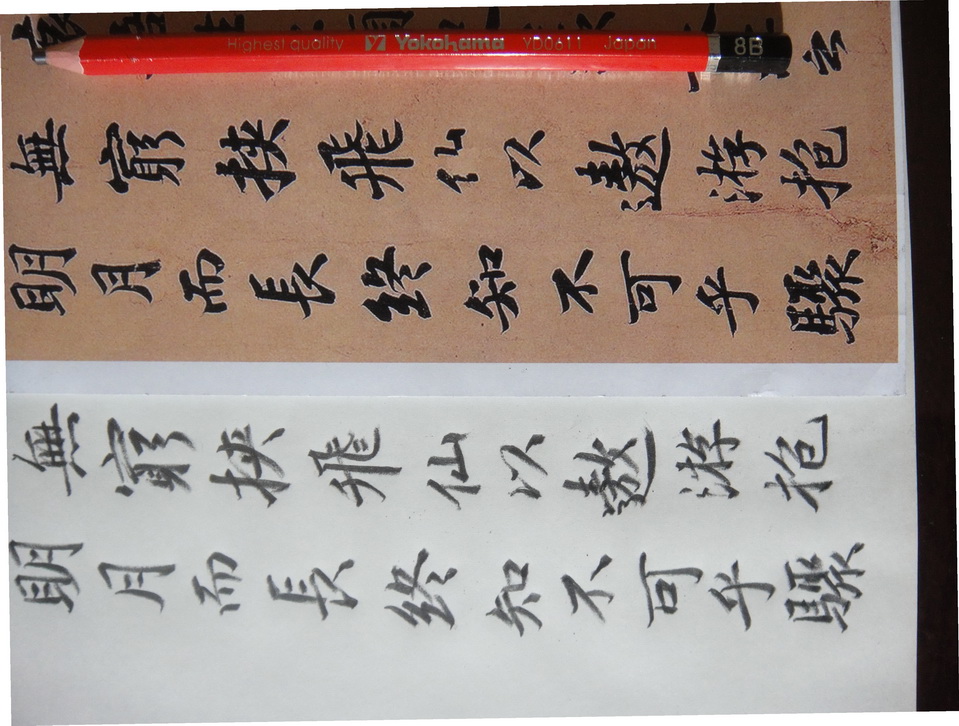 Highest quality Yokohama YD0611 Japan 8B
無窮挾飛仙以遨游抱
明月而長終知不可乎驟
無窮挾飛仙以遨游抱
明月而長終知不可乎驟